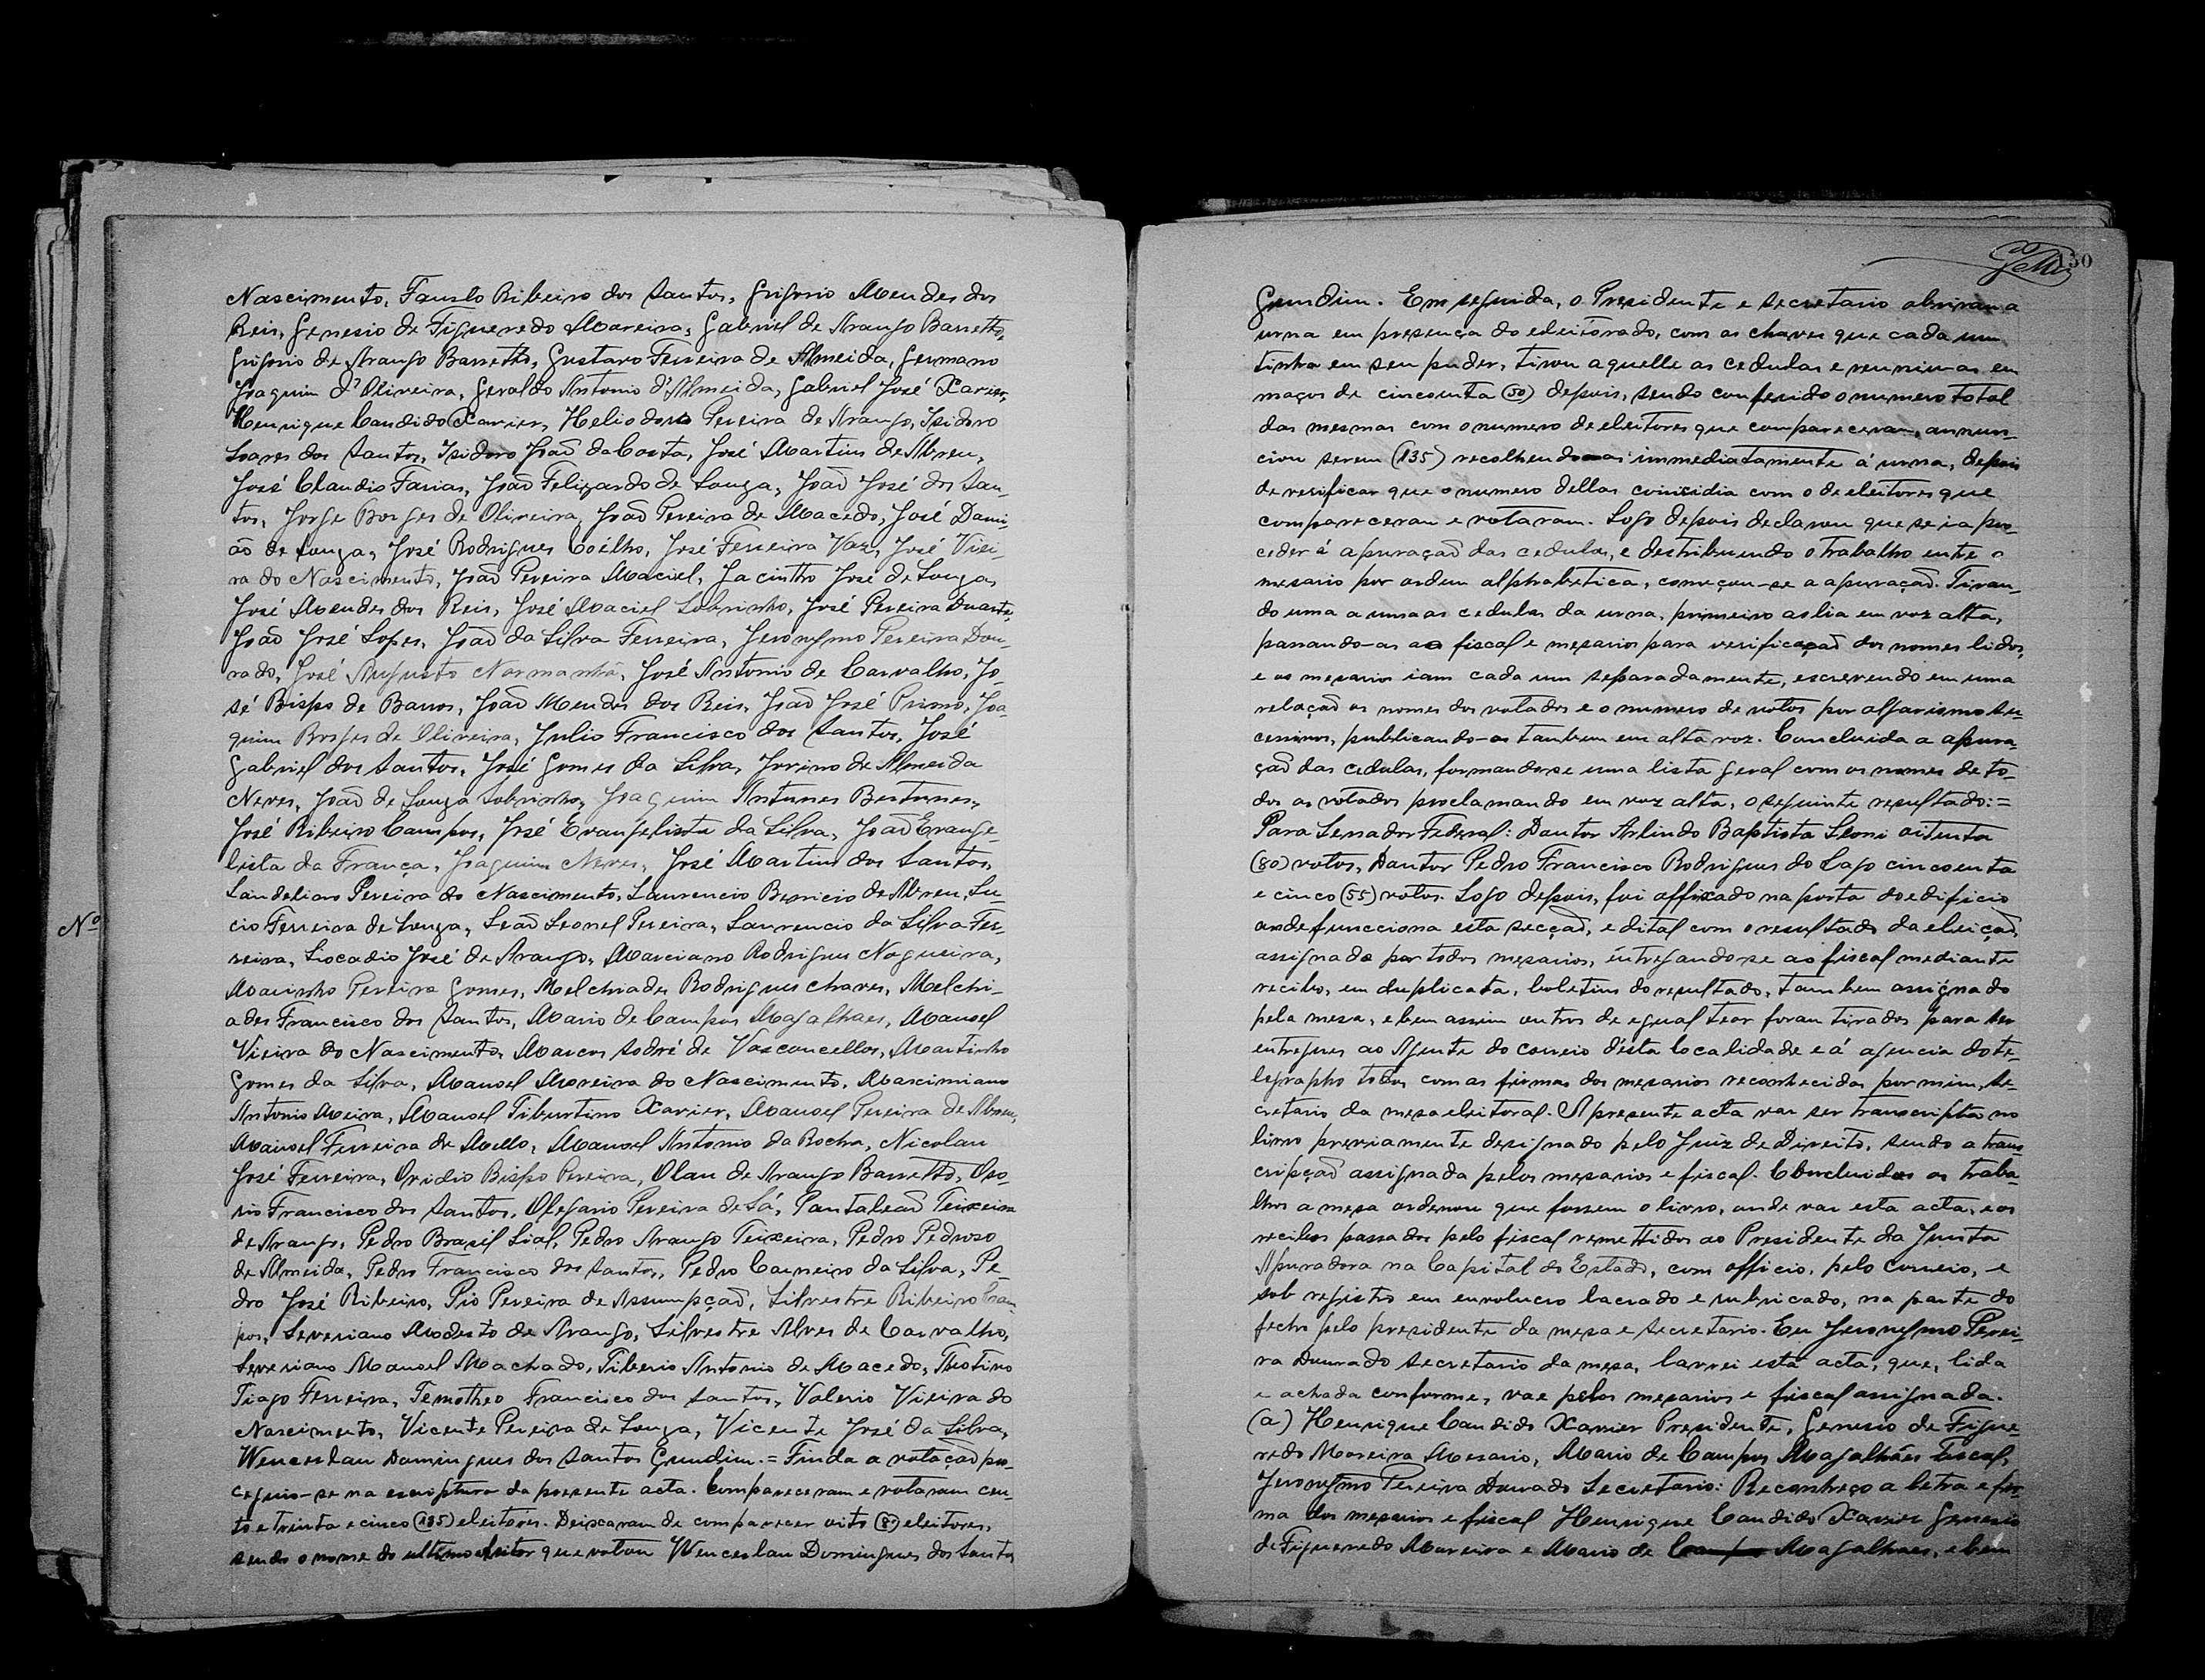 Nascimento, Fausto Ribeiro dos Santos, Grigorio Mendes dos
Reis, Genesio de Figueredo Moreira, Gabriel de Araujo Barretto,
Grigorio de Araujo Barretto, Gustavo Ferreira de Almeida, Germano
Joaquim d'Oliveira, Geraldo Antonio d'Almeida, Gabriel José Xavier,
Henrique Candido Xavier, Heliodoro Pereira de Araujo, Isidoro
Soares dos Santos, Isidoro João da Costa, José Martins de Abreu,
José Claudio Farias, João Felizardo de Souza, João José dos San-
tos, Jorge Borges de Oliveira, João Pereira de Macedo, José Dami-
ão de Souza, José Rodrigues Coêlho, José Ferreira Vaz, José Viei-
ra do Nascimento, João Pereira Maciel, Jacintho José de Souza,
José Mendes dos Reis, José Maciel Sobrinho, José Pereira Duarte,
João José Lopes, João da Silva Ferreira, Jeronymo Pereira Dou-
rado, José Augusto Normanha, José Antonio de Carvalho, Jo-
sé Bispo de Barros, João Mendes dos Reis, João José Primo, Joa-
quim Borges de Oliveira, Julio Francisco dos Santos, José
Gabriel dos Santos, José Gomes da Silva, Jovino de Almeida
Neves, João de Souza Sobrinho, Joaquim Antunes
José Ribeiro Campos, José Evangelista da Silva, João Evange-
lista da França, Joaquim Neves, José Martins dos Santos,
Landelino Pereira do Nascimento, Laurencio Benicio de Abreu, Lu-
cio Ferreira de Souza, Leão Leonel Pereira, Laurencio da Silva Fer-
reira, Liocadio José de Araujo, Marciano Rodrigues Nogueira,
Marinho Pereira Gomes, Melchiades Rodrigues Chaves, Melchi-
ades Francisco dos Santos, Mario de Campos Magalhaes, Manoel
Vieira do Nascimento, Marcos Sodré de Vasconcellos, Martinho
Gomes da Silva, Manoel Moreira do Nascimento, Mascimiano
Antonio Meira, Manoel Tiburtino Xavier, Manoel Pereira de Abreu,
Manoel Ferreira de Mello, Manoel Antonio da Rocha, Nicolau
José Ferreira, Ovidio Bispo Pereira, Olau de Araujo Barretto, Oso-
rio Francisco dos Santos, Olegario Pereira de Sá, Pantaleão Teixeira
de Araujo, Pedro Brazil Lial, Pedro Araujo Teixeira, Pedro Pedroso
de Almeida, Pedro Francisco dos Santos, Pedro Carneiro da Silva, Pe-
dro José Ribeiro, Pio Pereira de Assumpção, Silvestre Ribeiro Cam-
pos, Severiano Modesto de Araujo, Silvestre Alves de Carvalho,
Severiano Manoel Machado, Tiberio Antonio de Macedo, Theotino
Tiago Ferreira, Temotheo Francisco dos Santos, Valerio Vieira do
Nascimento, Vicente Pereira de Souza, Vicente José da Silva,
Wenceslau Domingues dos Santos Gundim.= Finda a votação pro-
ceguio-se na escriptura da presente acta. Compareceram e votaram cen-
to e trinta e cinco (135) eleitores. Deixaram de comparecer oito (8) eleitores,
sendo o nome do ultimo eleitor que votou Wenceslau Domingues dos Santos
Nº
130
Gundim. Em seguida, o Presidente e secretario abriram a
urna em presença do eleitorado, com as chaves que cada um
tinha em seu poder, tirou aquelle as cedulas e reuniu-as em
maços de cincoenta (50) depois, sendo conferido o numero total
das mesmas com o numero de eleitores que compareceram, annun-
ciou serem (135) recolhendo-as immediatamente á urna, depois
de verificar que o numero dellas coincidia com o de eleitores que
compareceram e votaram. Logo depois declarou que se ia pro-
ceder á apuração das cedulas, e destribuindo o trabalho entre o
mesario por ordem alphabetica, começou-se a apuração. Tiran-
do uma a uma as cedulas da urna, primeiro as lia em voz alta,
passando-as ao fiscal e mesarios para verificação dos nomes lidos,
e os mesarios iam cada um separadamente, escrevendo em uma
relação os nomes dos votados e o numero de votos por algarismo su-
cessivos, publicando-os tambem em alta voz. Concluida a apura-
ção das cedulas, formando-se uma lista geral com os nomes de to-
dos os votados proclamando em voz alta, o seguinte resultado:=
Para Senador Federal: Doutor Arlindo Baptista Leoni oitenta
(80) votos, Doutor Pedro Francisco Rodrigues do Lago cincoenta
e cinco (55) votos. Logo depois, foi affixado na porta do edificio
onde funcciona esta secção, edital com o resultado da eleição,
assignado por todos mesarios, entregando-se ao fiscal mediante
recibo, em duplicata, boletins do resultado, tambem assignado
pela mesa, e bem assim outros de egual teor foram tirados para ser
entregues ao Agente do correio désta localidade e á agencia do te-
legrapho todos com as firmas dos mesarios reconhecidas por mim, Se-
cretario da mesa eleitoral. A presente acta vae ser transcripta no
livro previamente designado pelo Juiz de Direito, sendo a trans-
cripção assignada pelos mesarios e fiscal. Concluidos os traba-
lhos a mesa ordenou que fossem o livro, onde vae esta acta, e os
recibos passados pelo fiscal remettidos ao Presidente da Junta
Apuradora na Capital do Estado, com officio, pelo correio, e
sob registro em envolucro lacrado e rubricado, na parte do
fecho pelo presidente da mesa e secretario. Eu Jeronymo Perei-
ra Dourado secretario da mesa, lavrei esta acta, que, lida
e achada conforme, vae pelos mesarios e fiscal assignada.
(a) Henrique Candido Xavier Presidente, Genesio de Figue-
redo Moreira Mesario, Mario de Campos Magalhães Fiscal,
Jeronymo Pereira Dourado Secretario: Reconheço a letra e fir-
ma dos mesarios e fiscal Henrique Candido Xavier Genesio
de Figueredo Moreira e Mario de Campos Magalhaes, e bem